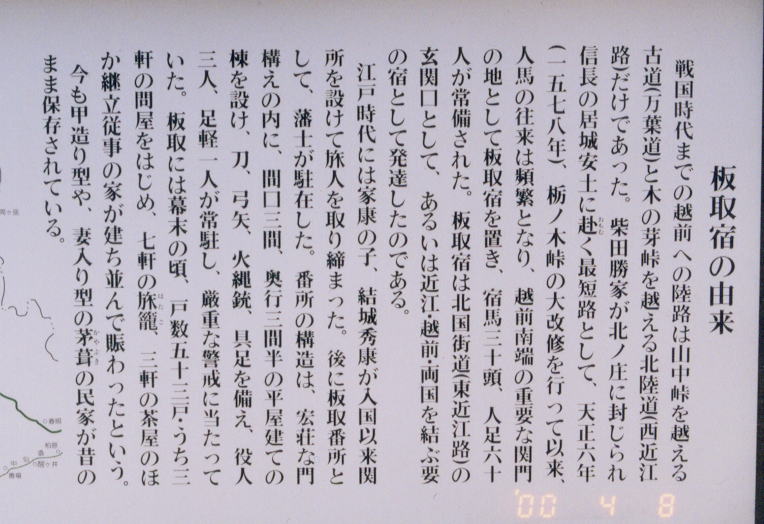 板取宿の由来
戦国時代までの越前への陸路は山中峠を越える
古道(万葉道)と木の芽峠を越える北陸道(西近江
路)だけであった。柴田勝家が北ノ庄に封じられ
信長の居城安土に赴く最短路として、天正六年
(一五七八年)、栃ノ木峠の大改修を行って以来、
人馬の往来は頻繁となり、越前南端の重要な関門
の地として板取宿を置き、宿馬三十頭、人足六十
人が常備された。板取宿は北国街道(東近江路)の
玄関口として、あるいは近江越前・両国を結ぶ要
の宿として発達したのである。
江戸時代には家康の子、結城秀康が入国以来関
所を設けて旅人を取り締まった。後に板取番所と
して、藩士が駐在した。番所の構造は、宏荘な門
構えの内に、間口三間、奥行三間半の平屋建ての
棟を設け、刀、弓矢、火縄銃、具足を備え、役人
三人、足軽一人が常駐し、厳重な警戒に当たって
いた。板取には幕末の頃、戸数五十三戸・うち三
軒の問屋をはじめ、七軒の旅籠、三軒の茶屋のほ
か継立従事の家が建ち並んで賑わったという。
今も甲造り型や、妻入り型の茅葺の民家が昔の
まま保存されている。
おもむ
はたご
かやぶき
春照
柏原
醒ヶ井
番場
'00 4 8